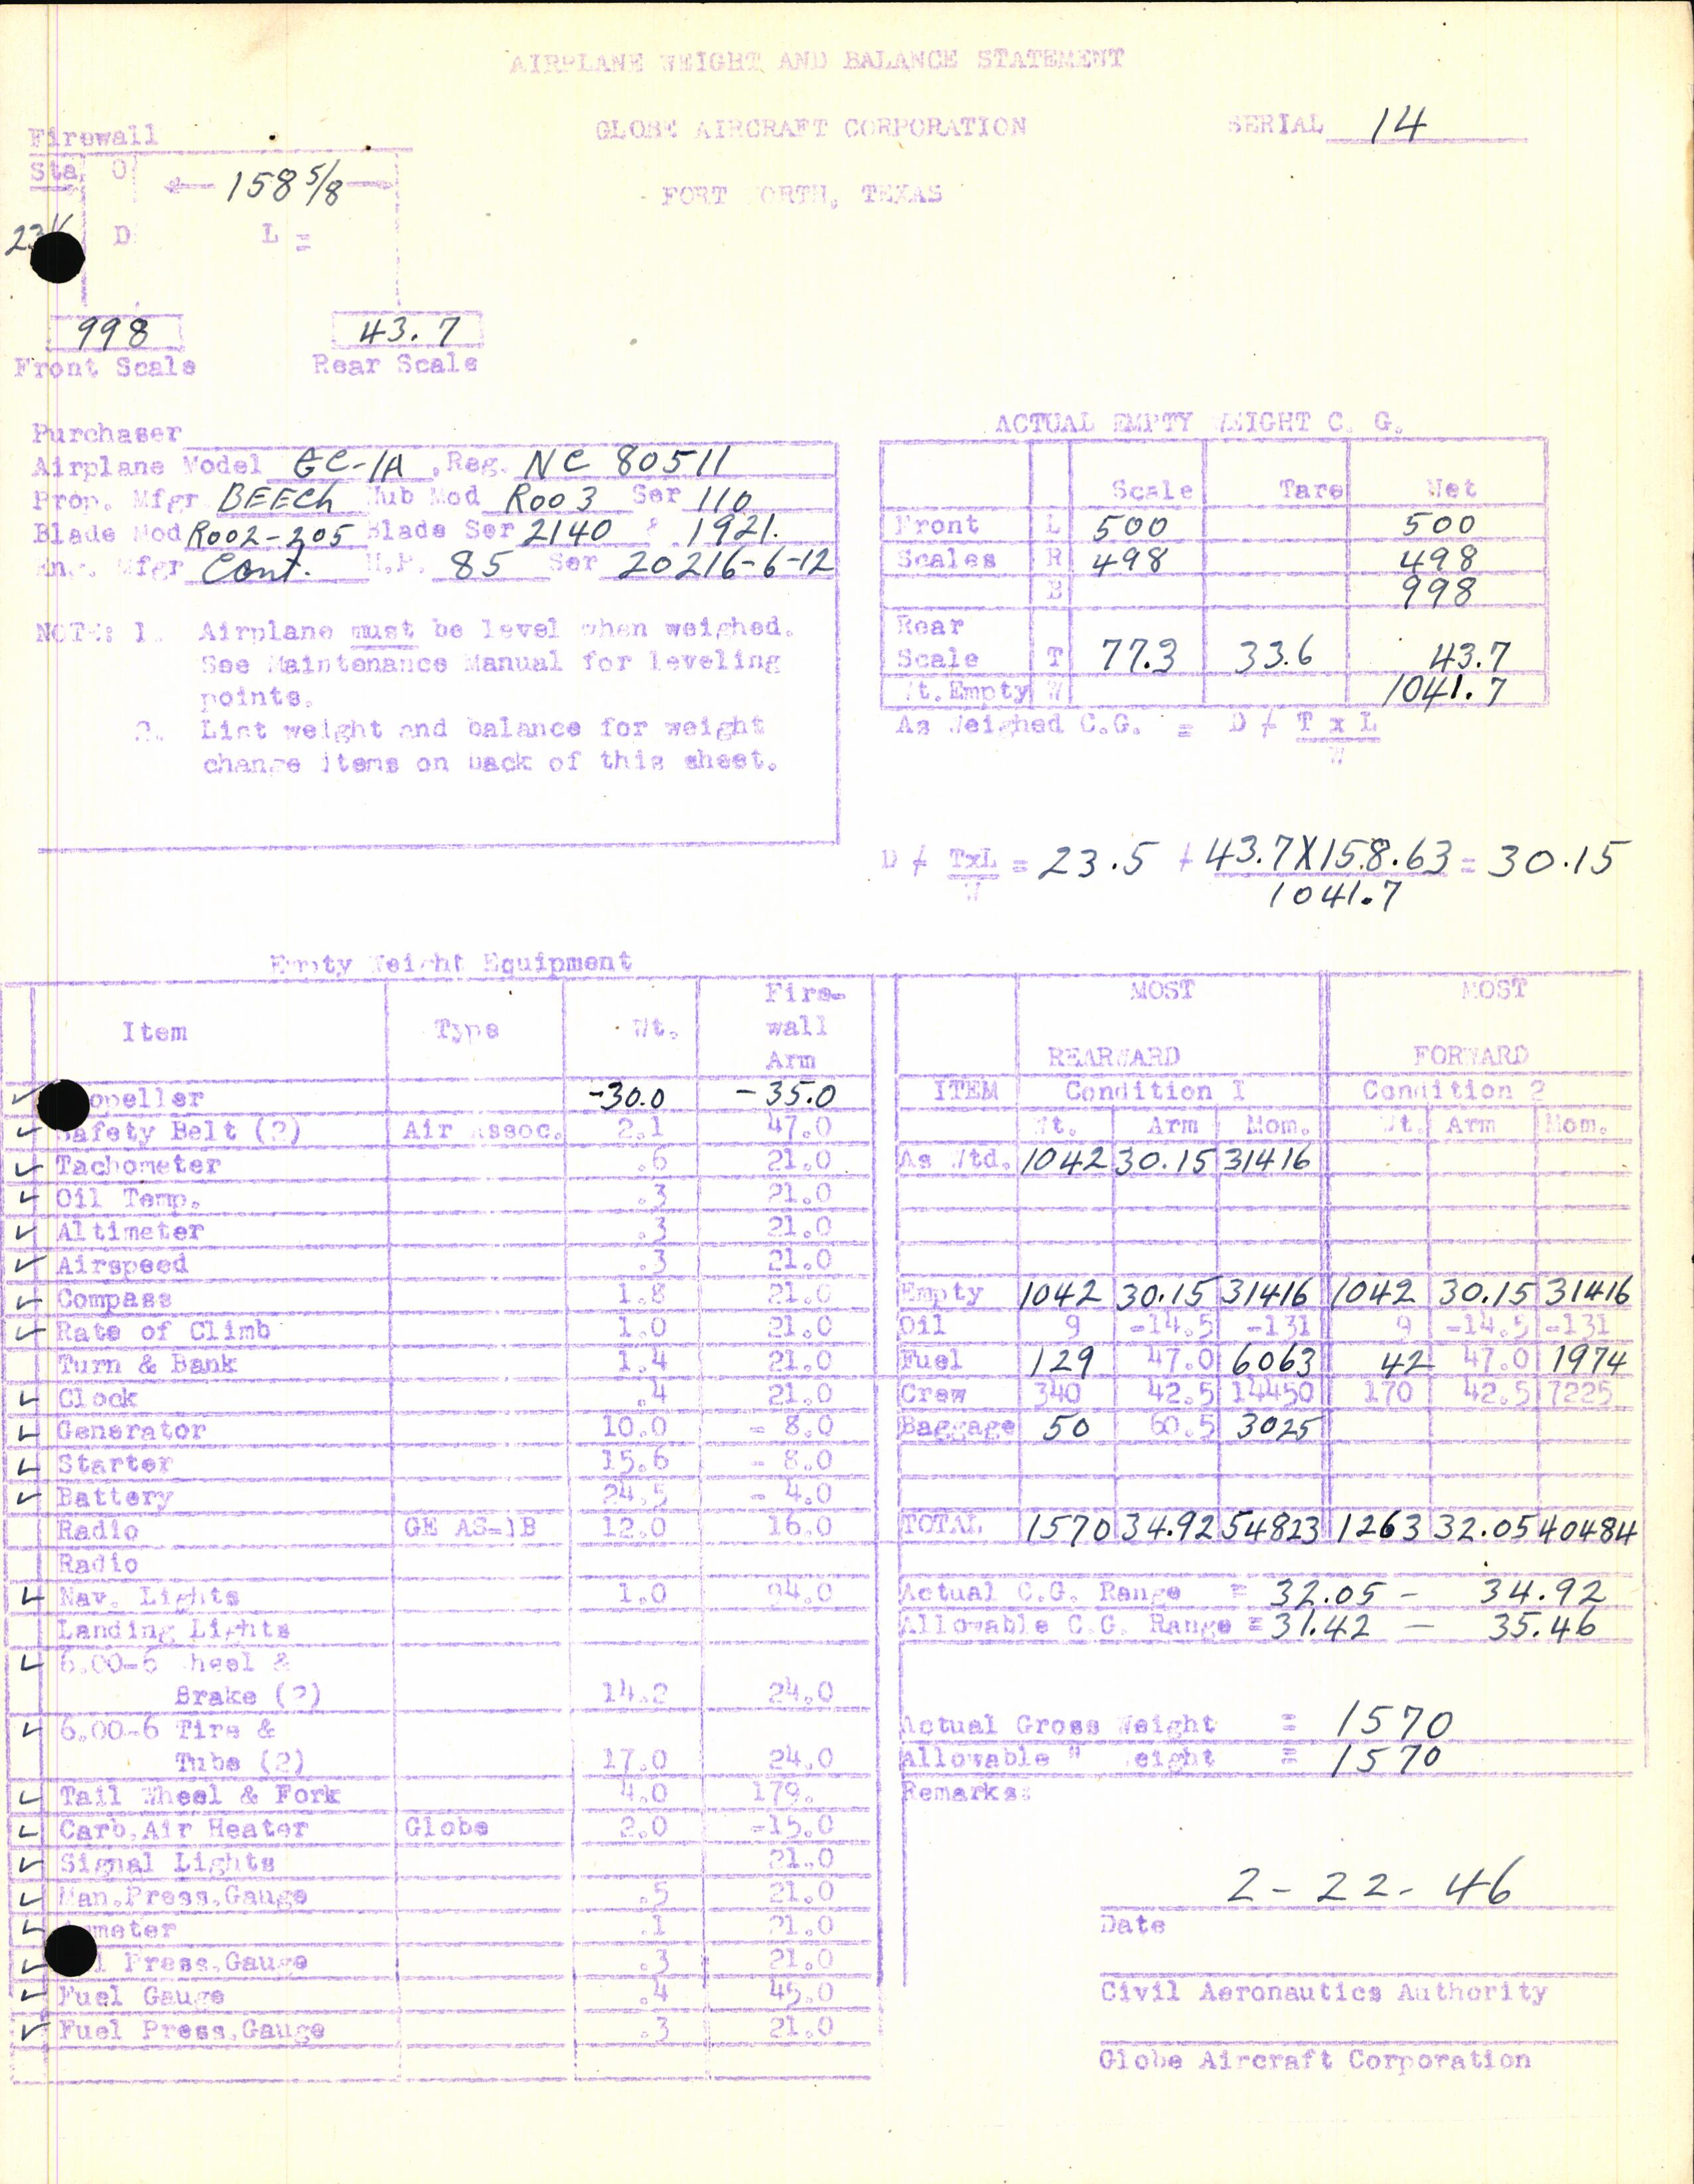 AIRPLANE WEIGHT AND BALANCE STATEMENT
GLOBE AIRCRAFT CORPORATION
SERIAL 14
FORT WORTH, TEXAS
Firewall
Sta. 0
158 5/8
D L =
998 43.7
Front Scale Rear Scale
Purchaser
Airplane Model GC-1A, Reg. NC 80511
Prop. Mfgr BEECH Hub Mod R003 Ser 110
Blade Mod R002-205 Blade Ser 2140 & 1921.
Eng. Mfgr Cont. H.P. 85 Ser 20216-6-12
NOTE: 1. Airplane must be level when weighed.
See Maintenance Manual for leveling
points.
2. List weight and balance for weight
change items on back of this sheet.
ACTUAL EMPTY WEIGHT C. G.
Scale Tare Net
Front L 500 500
Scales R 498 498
B 998
Rear
Scale T 77.3 33.6 43.7
Wt. Empty W 1041.7
As Weighed C.G. = D + T x L
W
D + TxL = 23.5 + 43.7X158.63 = 30.15
W 1041.7
Empty Weight Equipment
Item Type Wt. Fire-
wall
Arm
✓ Propeller -30.0 -35.0
✓ Safety Belt (2) Air Assoc. 2.1 47.0
✓ Tachometer .6 21.0
✓ Oil Temp. .3 21.0
✓ Altimeter .3 21.0
✓ Airspeed .3 21.0
✓ Compass 1.8 21.0
✓ Rate of Climb 1.0 21.0
Turn & Bank 1.4 21.0
✓ Clock .4 21.0
✓ Generator 10.0 - 8.0
✓ Starter 15.6 - 8.0
✓ Battery 24.5 - 4.0
Radio GE AS-1B 12.0 16.0
Radio
✓ Nav. Lights 1.0 94.0
Landing Lights
✓ 6.00-6 Wheel &
Brake (2) 14.2 24.0
✓ 6.00-6 Tire &
Tube (2) 17.0 24.0
✓ Tail Wheel & Fork 4.0 179.
✓ Carb.Air Heater Globe 2.0 -15.0
✓ Signal Lights 21.0
✓ Man.Press.Gauge .5 21.0
✓ Ammeter .1 21.0
✓ Oil Press.Gauge .3 21.0
✓ Fuel Gauge .4 45.0
✓ Fuel Press.Gauge .3 21.0
MOST MOST
REARWARD FORWARD
ITEM Condition 1 Condition 2
Wt. Arm Mom. Wt. Arm Mom.
As Wtd. 1042 30.15 31416
Empty 1042 30.15 31416 1042 30.15 31416
Oil 9 -14.5 -131 9 -14.5 -131
Fuel 129 47.0 6063 42 47.0 1974
Crew 340 42.5 14450 170 42.5 7225
Baggage 50 60.5 3025
TOTAL 1570 34.92 54823 1263 32.05 40484
Actual C.G. Range = 32.05 - 34.92
Allowable C.G. Range = 31.42 - 35.46
Actual Gross Weight = 1570
Allowable " Weight = 1570
Remarks:
2-22-46
Date
Civil Aeronautics Authority
Globe Aircraft Corporation